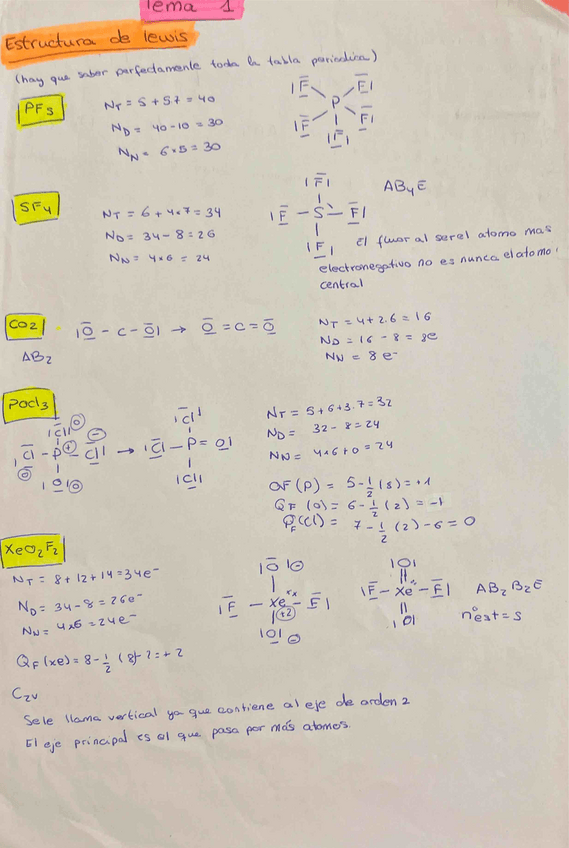 Tema 1
Estructura de lewis
(hay que saber perfectamente toda la tabla periodica)
PF5
NT = 5 + 5·7 = 40
ND = 40 - 10 = 30
NN = 6×5 = 30
SF4
NT = 6 + 4×7 = 34
ND = 34 - 8 = 26
NN = 4×6 = 24
AB4E
El fluor al ser el atomo mas
electronegativo no es nunca el atomo
central
CO2
|O - C - O| → O = C = O
AB2
NT = 4 + 2·6 = 16
ND = 16 - 8 = 8e
NN = 8 e-
POCl3
NT = 5 + 6 + 3·7 = 32
ND = 32 - 8 = 24
NN = 4×6 + 0 = 24
QF (P) = 5 - 1/2 (8) = +1
QF (O) = 6 - 1/2 (2) = -1
QF (Cl) = 7 - 1/2 (2) - 6 = 0
XeO2F2
NT = 8 + 12 + 14 = 34e-
ND = 34 - 8 = 26e-
NN = 4×6 = 24e-
QF (xe) = 8 - 1/2 (8) - 2 = +2
AB2B2E
nºest = 5
C2v
Se le llama vertical ya que contiene al eje de orden 2
El eje principal es el que pasa por más atomos.